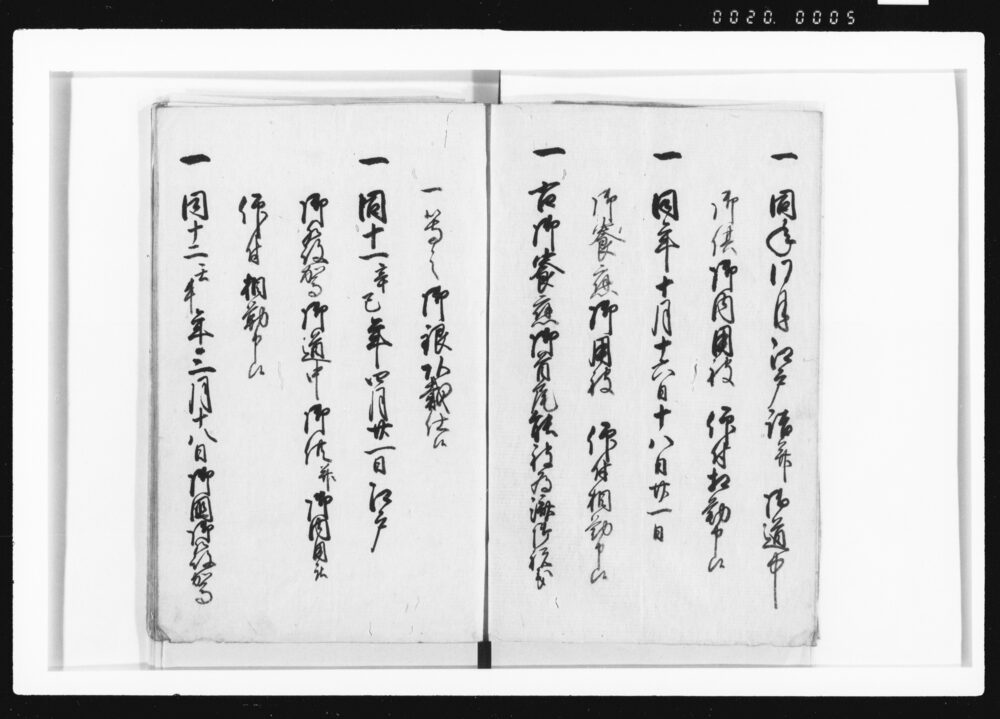 0020. 0005
一 同年 月江戸詰并御道中
御供御内用役 仰付相勤申候
一 同年十月十六日十八日廿一日
御饗應御用役 仰付相勤申候
一 右御饗應御首尾能被為済御祝
一 等之御銀頂戴仕候
一 同十一辛巳年四月廿一日江戸
御發駕御道中御供并御内用役
仰付相勤申候
一 同十二壬午年三月十八日御國御發駕